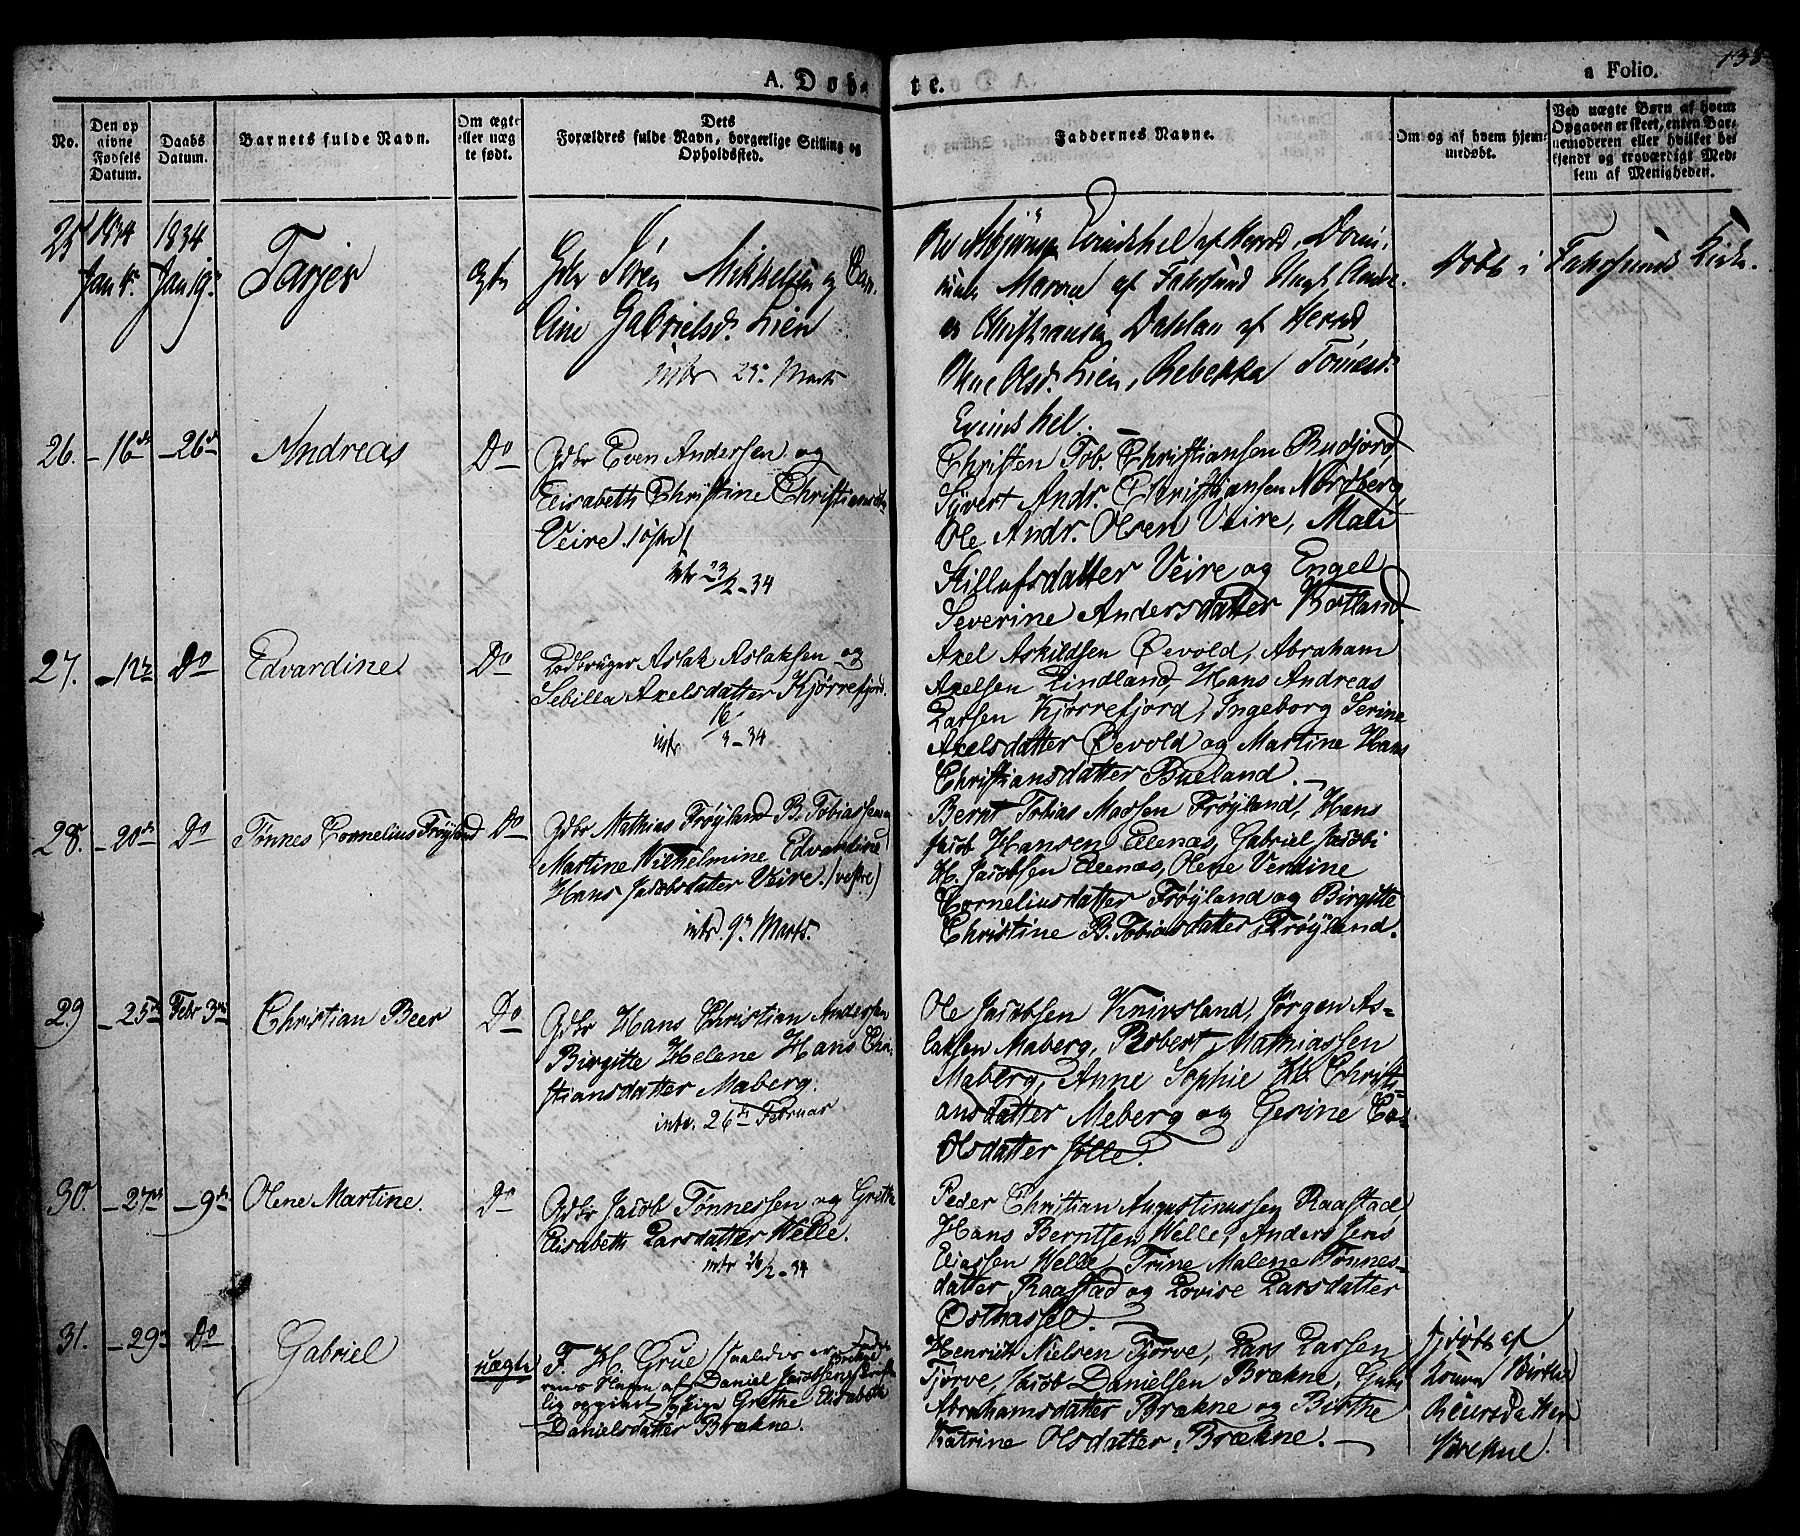 A. Døbte.
a Folio.
138
No.
Den op
givne
Fødsels
Datum.
Daabs
Datum.
Barnets fulde Navn.
Om ægte
eller uæg
te født.
Dets
Forældres fulde Navn, borgerlige Stilling og
Opholdssted.
Faddernes Navne.
Om og af hvem hjem-
medøbt.
Ved uægte Børn af hvem
Opgaven er skeet, enten Bar-
nemoderen eller hvilket be-
kjendt og troværdigt Med-
lem af Menigheden.
25
1834
1834
Jan 19
Tarjer
Gdbr Sören Mikkelsen og
Gabrielsd. Lien
intr 25 Marts
af Farsund
Christiansen Dahlan af Herred
Olsd. Lien, Rebekka
Döbt i Farsunds Kirke.
26. – 16de – 26de
Andreas
Do
Gdbr Even Andersen og
Elisabeth Christine
Veire.
intr 23/2 – 34
Christen Tob. Christiansen Budjord
Syvert Andr. Christiansen Nordberg
Ole Andr. Olsen Veire, Mali
Killufsdatter Veire og Engel
Severine Andersdatter
27. – 12te Do
Edvardine
Do
Lodbruger Aslak Aslaksen og
Sebilla Axelsdatter Kjørrefjord.
intr 16/3 – 34
Axel Askildsen Øevold, Abraham
Axelsen Lindland, Hans Andreas
Larsen Kjørrefjord, Ingeborg Serine
Axelsdatter Øevold og Martine Hans
Christiansdatter Bueland.
28. – 20de Do
Tønnes Cornelius Frøyland
Do
Gdbr Mathias Frøyland B. Tobiassen
Martine Wilhelmine Edvardine
Hans Jacobsdatter Veire. (vestre)
intr. 9 Marts.
Bernt Tobias Massen Frøyland, Hans
Jacob Hansen Elenæs, Gabriel Jacobi
H. Jacobsen Elenæs, Olene Verdine
Corneliusdatter Frøyland og Birgitte
Christine B. Tobiasdatter Frøyland.
29 – 25de Febr 3die
Christian Beer
Do
Gdbr Hans Christian Andersen
Birgitte Helene Hans Chri-
stiansdatter Maberg.
intr. 26de Februar
Ole Jacobsen Knivsland, Jørgen As-
laksen Maberg, Robert Mathiassen
Maberg, Anne Sophie H. Christi-
ansdatter Meberg og Gerine
Olsdatter Jølle.
30. – 27de – 9de
Olene Martine.
Do
Gdbr Jacob Tønnessen og Grethe
Elisabeth Larsdatter Welle.
intr 26/2 – 34
Peder Christian Augustinussen Raastad
Hans Berntsen Welle, Anders Jens
Eliassen Welle, Trine Malene Tønnes-
datter Raastad og Lovise Larsdatter
Østhassel.
31. – 29de Do
Gabriel
uægte
F. H. Grue
af Daniel Jacobsen
lig opgivet) Grethe Elisabeth
Danielsdatter Brækne.
Henrich Nielsen Tjørve, Lars Larsen
Tjørve, Jacob Danielsen Brækne,
Abrahamsdatter Brækne og Birthe
Katrine Olsdatter Brækne.
hjdöbt af
Reiersdatter
Brekne.